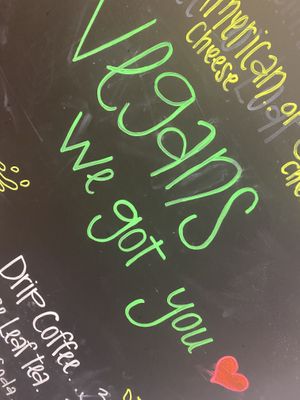 American or
cheese
Vegans
we got you
Drip Coffee
Leaf Tea.